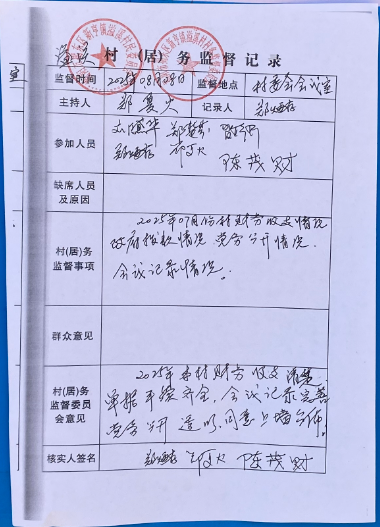 村（居）务监督记录
监督时间 2025年08月28日 监督地点 村委会会议室
主持人 郑夏火 记录人
参加人员
陈茂财
缺席人员
及原因
村(居)务
监督事项
2025年07月份村财务收支情况
政府拨款情况 党务公开情况.
会议记录情况。
群众意见
村(居)务
监督委员
会意见
2025年 村财务收支清楚
单据 齐全，会议记录完善
党务公开透明，同意上墙公布。
核实人签名 陈茂财